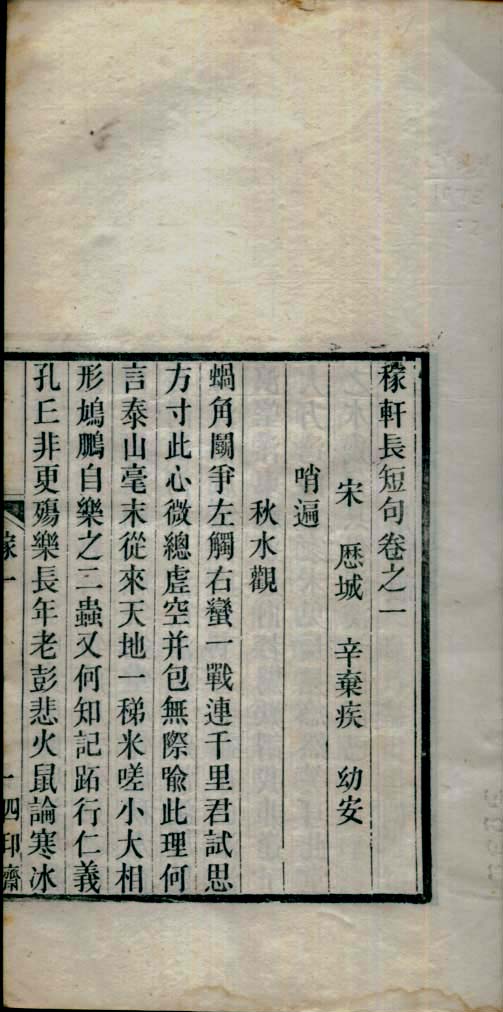 稼軒長短句卷之一
宋 厯城 辛棄疾 幼安
哨遍
秋水觀
蝸角鬬爭左觸右蠻一戰連千里君試思
方寸此心微總虛空并包無際喻此理何
言泰山毫末從來天地一稊米嗟小大相
形鳩鵬自樂之二蟲又何知記跖行仁義
孔丘非更殤樂長年老彭悲火鼠論寒冰
稼一
一 四印齋